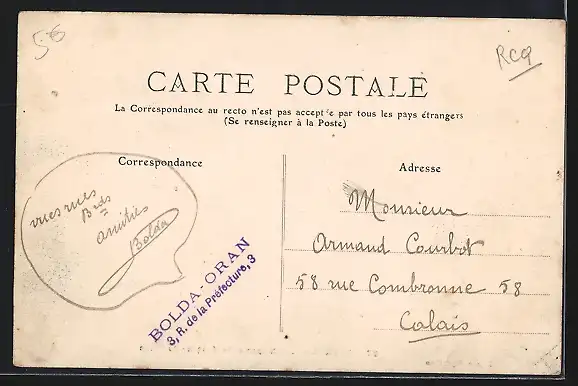 56
RC9
CARTE POSTALE
La Correspondance au recto n'est pas acceptée par tous les pays étrangers
(Se renseigner à la Poste)
Correspondance
vues rues
Bds
amitiés
Bolda
BOLDA-ORAN
3, R. de la Préfecture, 3
Adresse
Monsieur
Armand Courbot
58 rue Combronne 58
Calais